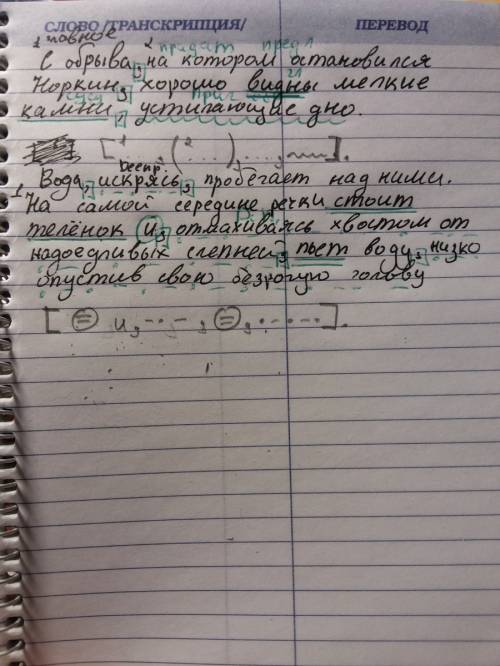 СЛОВО /ТРАНСКРИПЦИЯ/ ПЕРЕВОД
1 главное 2 придат предл
С обрыва, на котором остановился
Норкин, хорошо видны мелкие
камни, устилающие дно.
[1 ..., (2 ....), ...,~~~].
Вода, искрясь, пробегает над ними.
1 На самой середине речки стоит
телёнок и, отмахиваясь хвостом от
надоедливых слепней, пьет воду, низко
опустив свою безрогую голову
[ = и, -.-.-, =, .-.-.-].